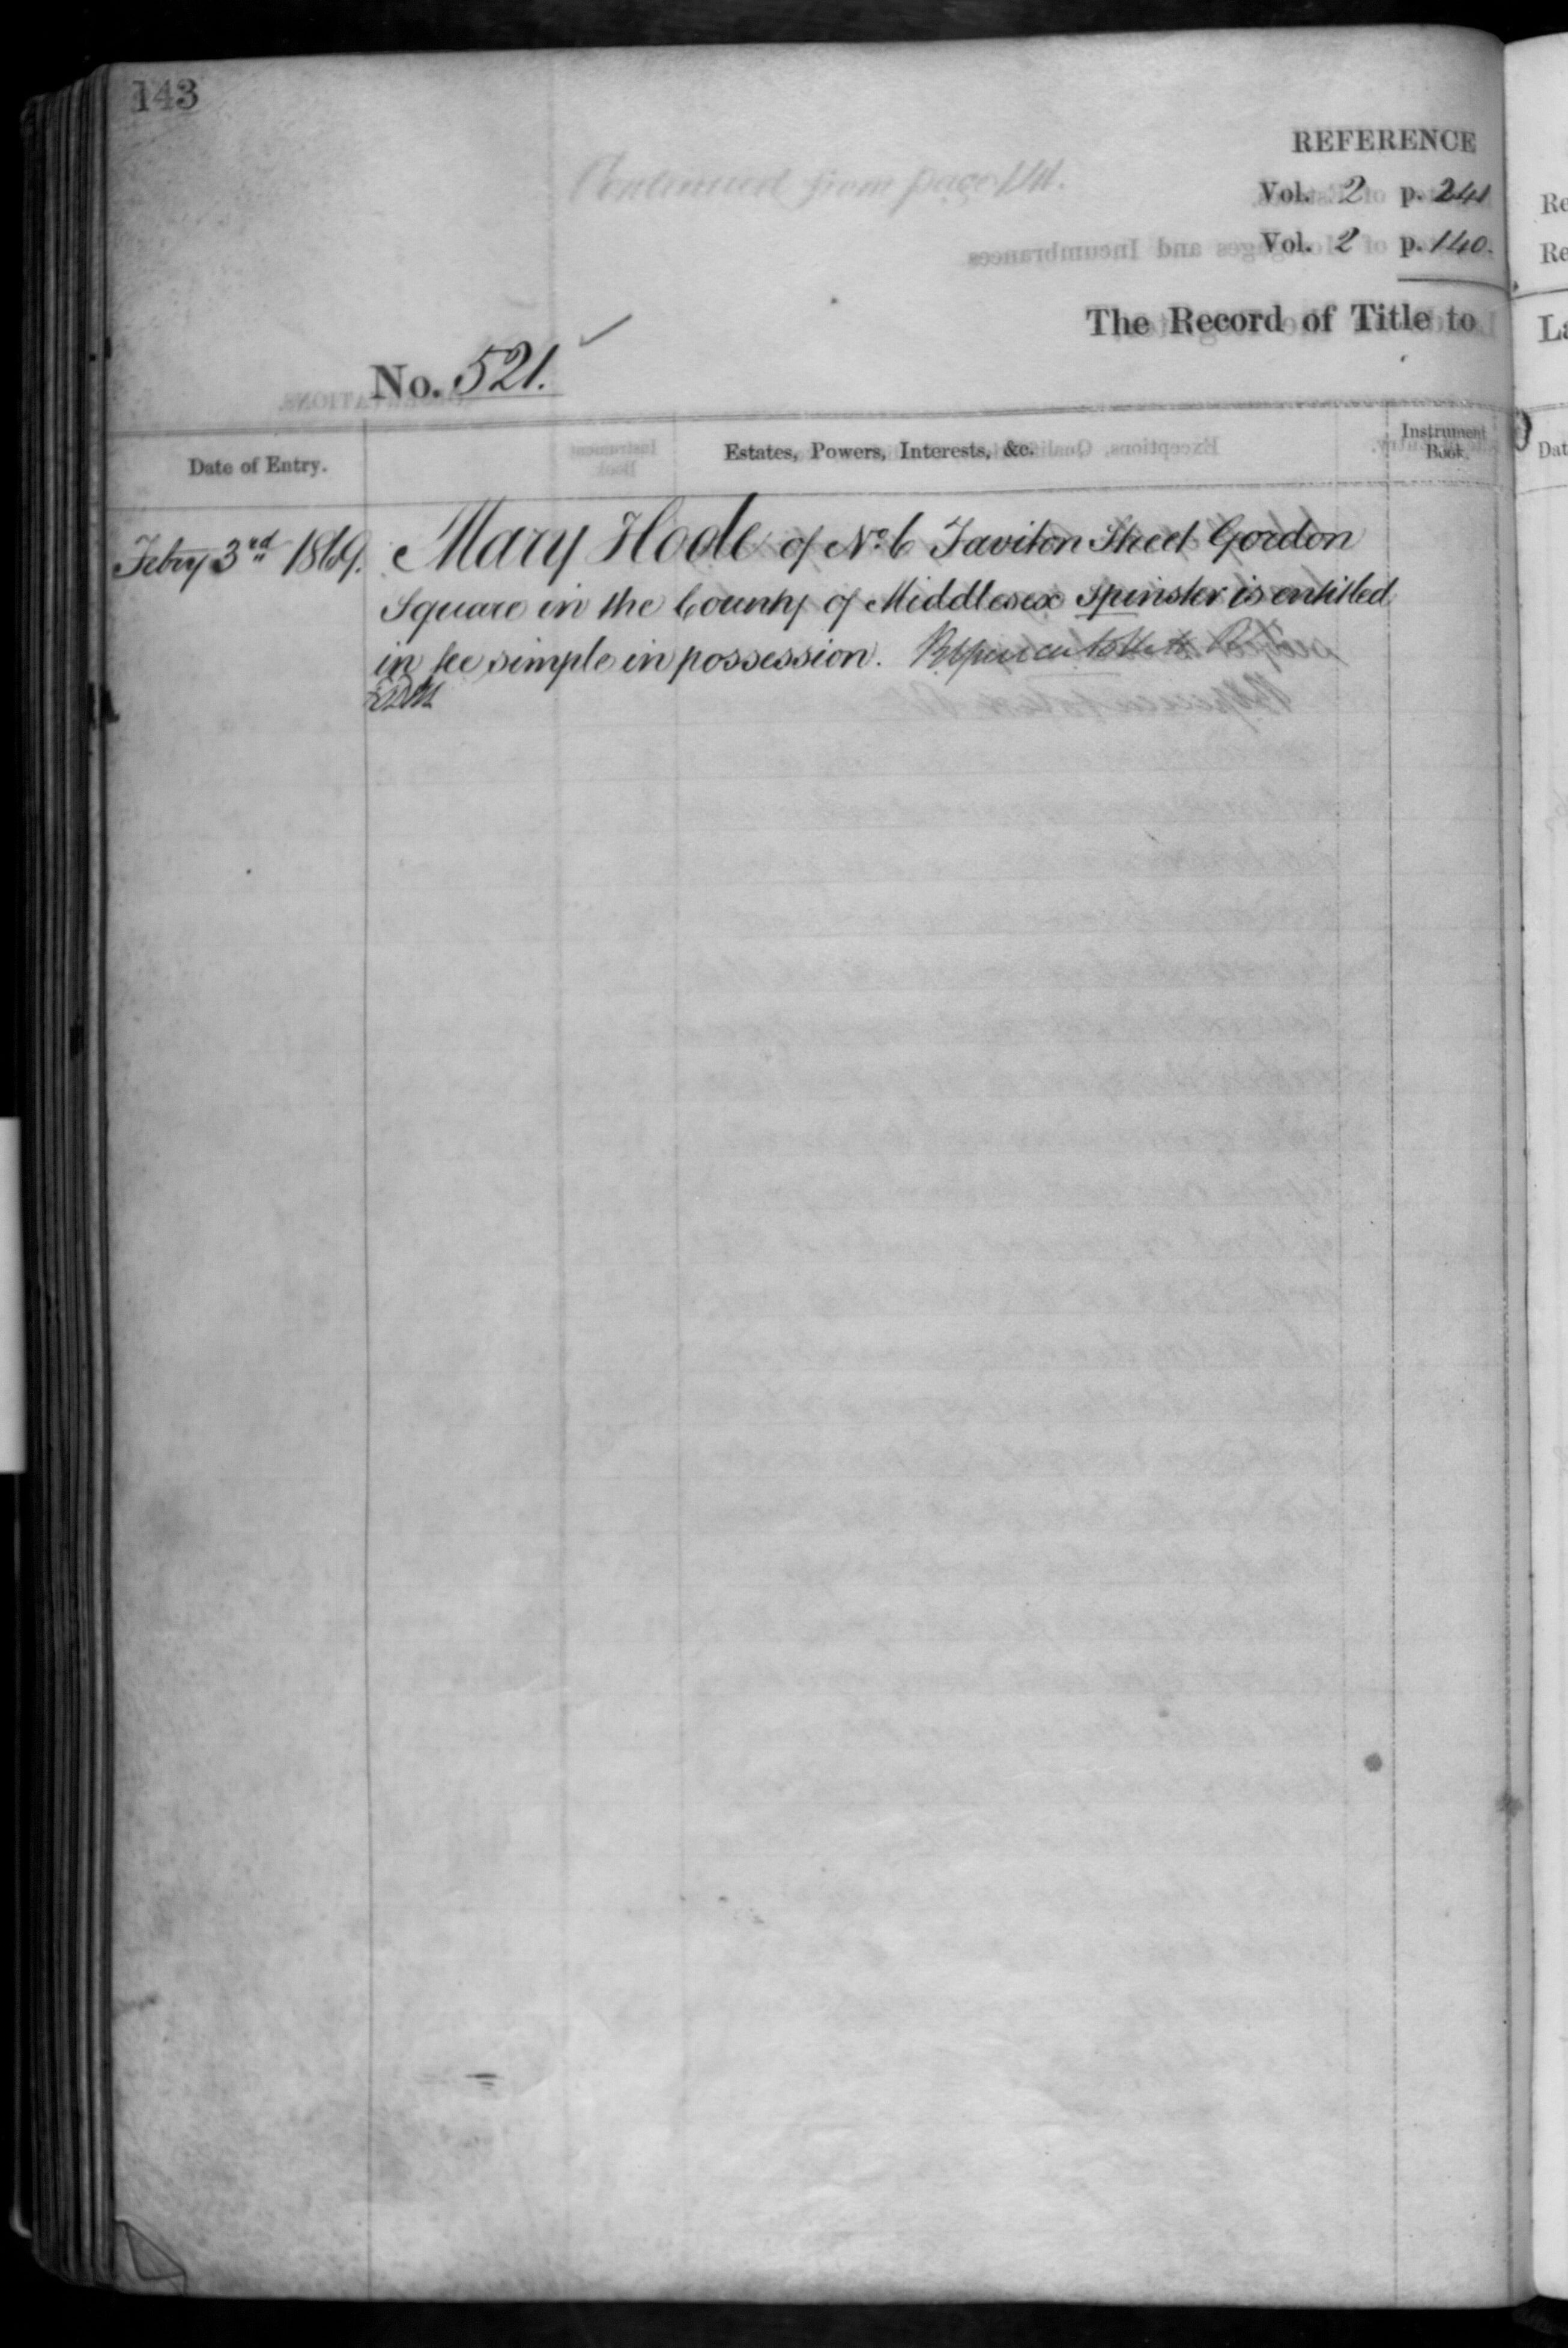 143
REFERENCE
Vol. 2 p. 241
Vol. 2 p. 140.
The Record of Title to
No. 521.
Date of Entry.
Estates, Powers, Interests, &c.
Instrument Book.
Febry 3rd 1869. Mary Hode of No. 6 Taviton Street Gordon
Square in the County of Middlesex Spinster is entitled
in fee simple in possession.